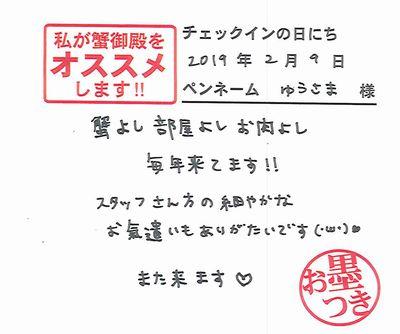 私が蟹御殿を
オススメ
します!!
チェックインの日にち
2019年2月9日
ペンネーム ゆうさま 様
蟹よし 部屋よし お肉よし
毎年来てます!!
スタッフさん方の細やかな
お氣遣いもありがたいです(･ω･)
また来ます♡
お墨つき